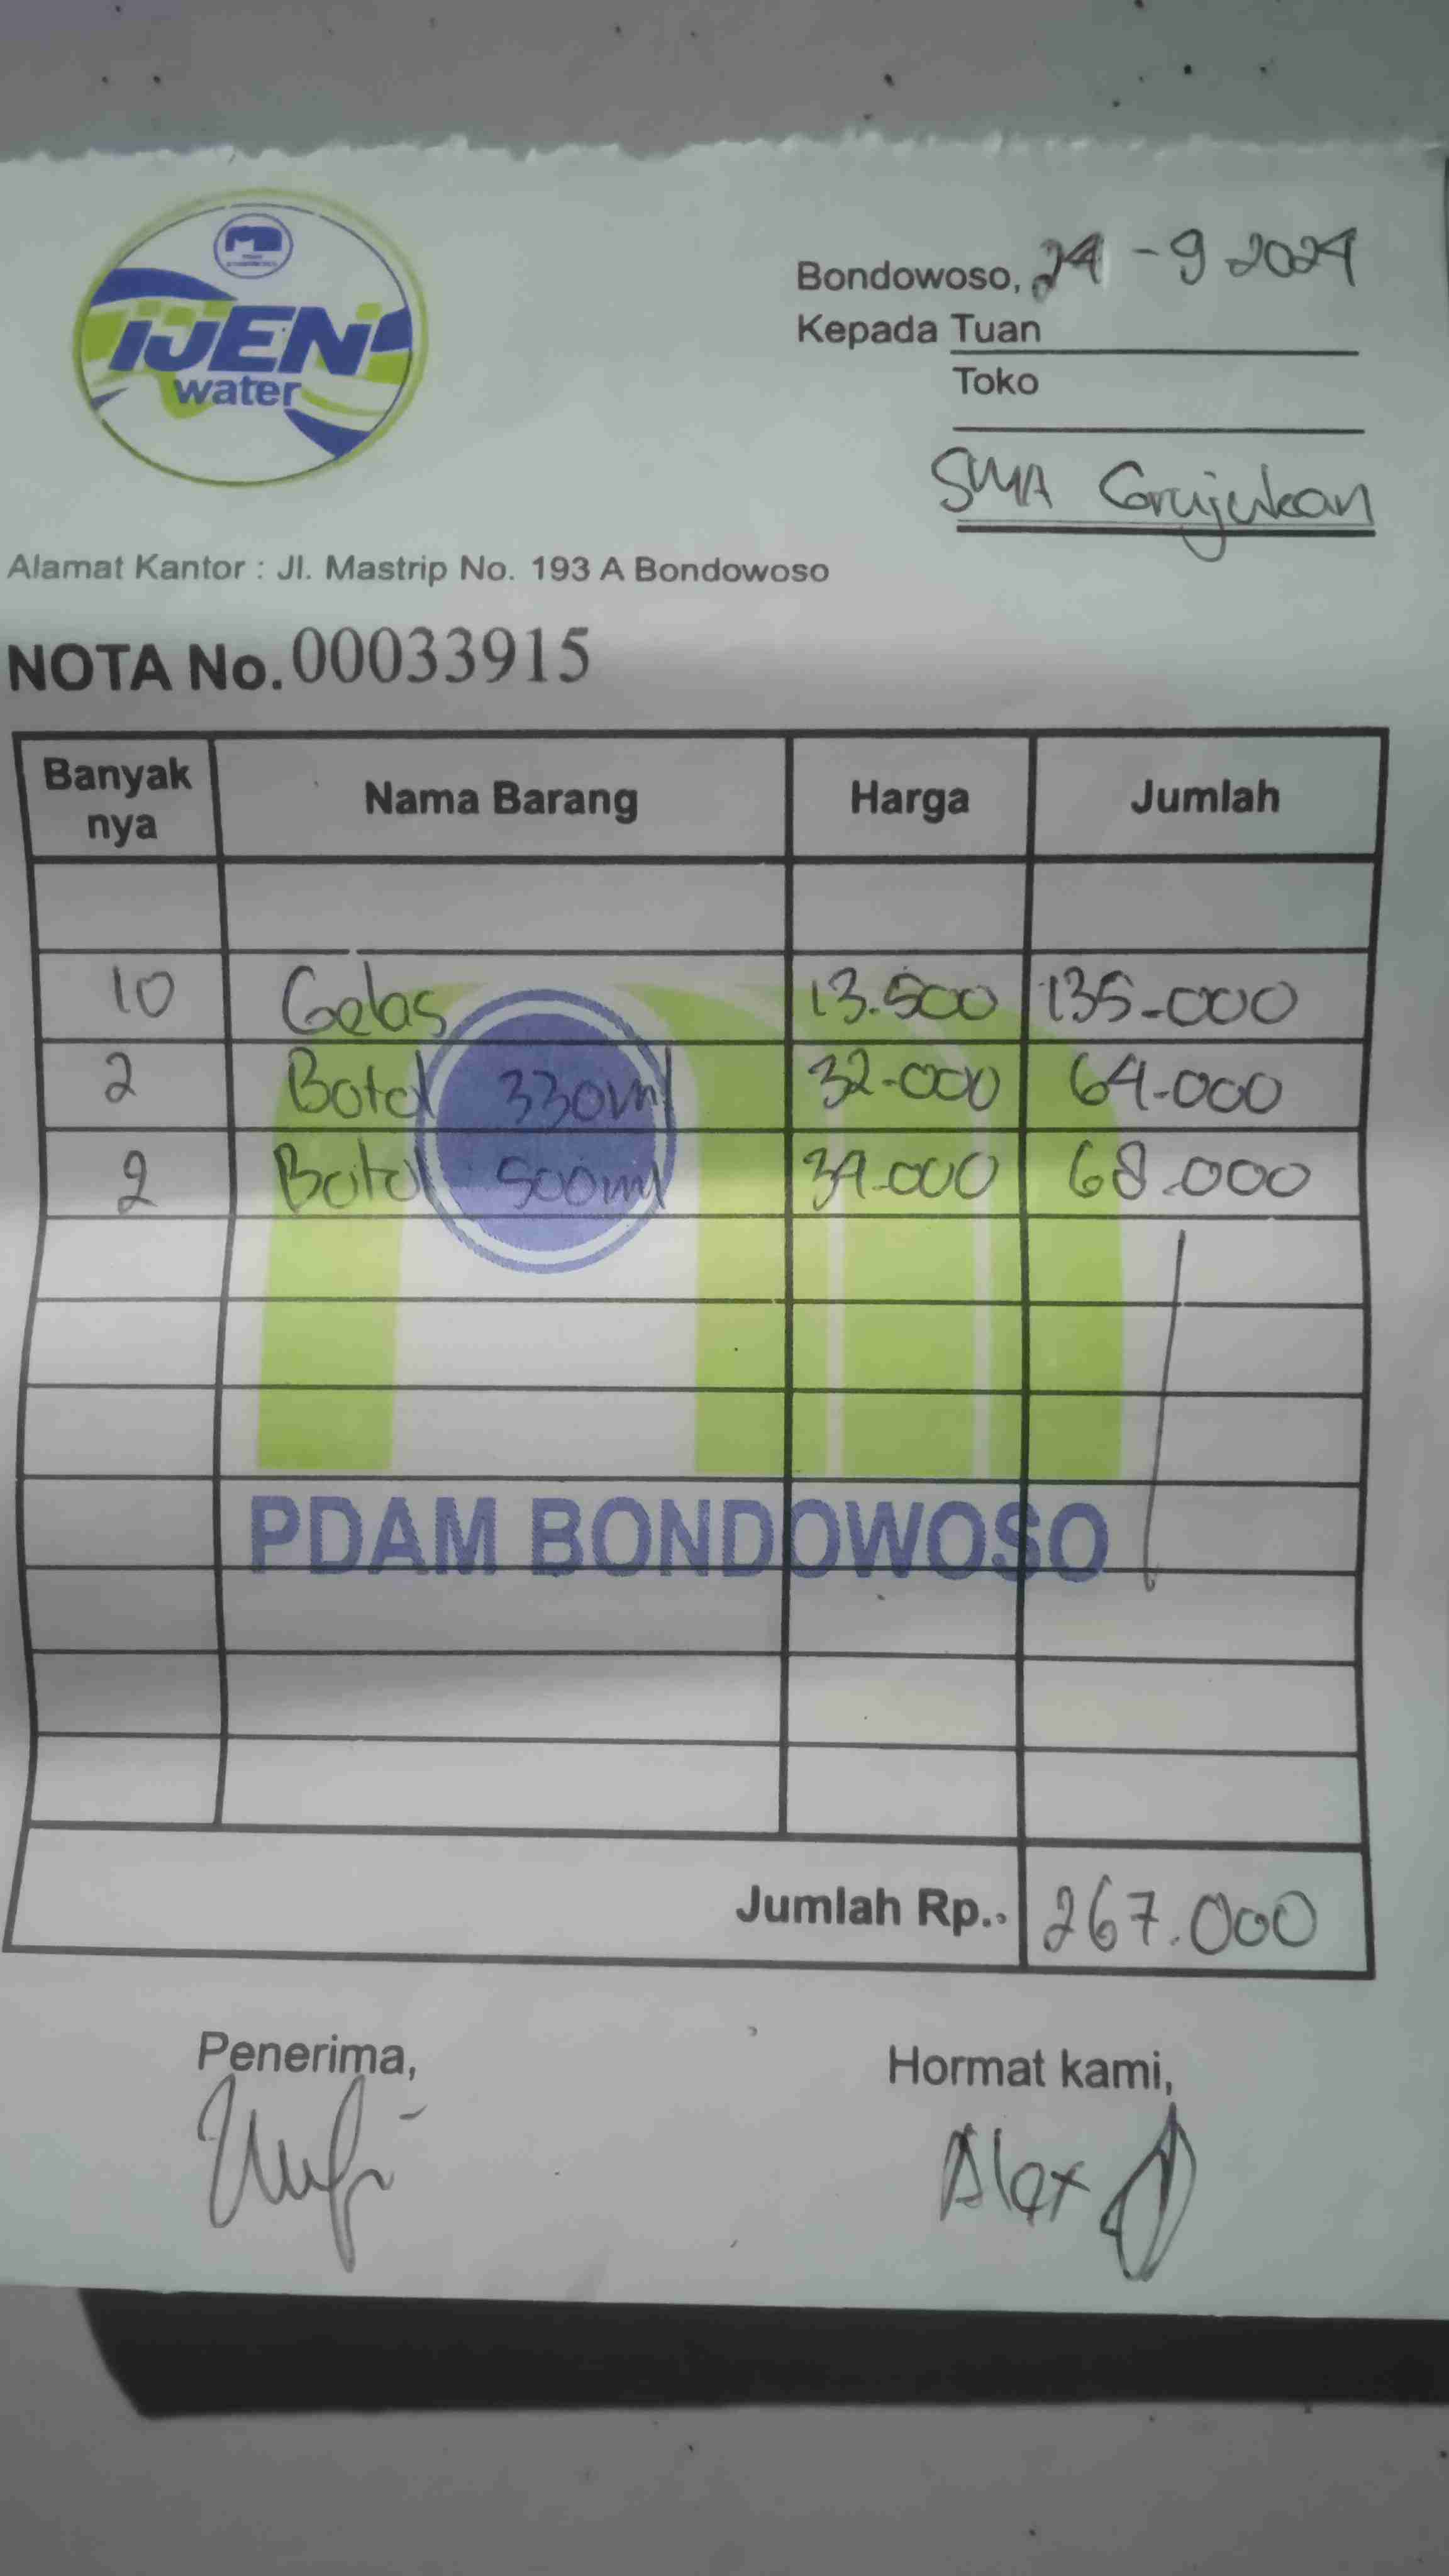 IJEN
water
Bondowoso, 24 - 9 2024
Kepada Tuan
Toko
SMA Grujukan
Alamat Kantor : Jl. Mastrip No. 193 A Bondowoso
NOTA No. 00033915
Banyak nya Nama Barang Harga Jumlah
10 Gelas 13.500 135.000
2 Botol 330ml 32.000 64.000
2 Botol 500ml 34.000 68.000
PDAM BONDOWOSO
Jumlah Rp.. 267.000
Penerima, Hormat kami,
Alex